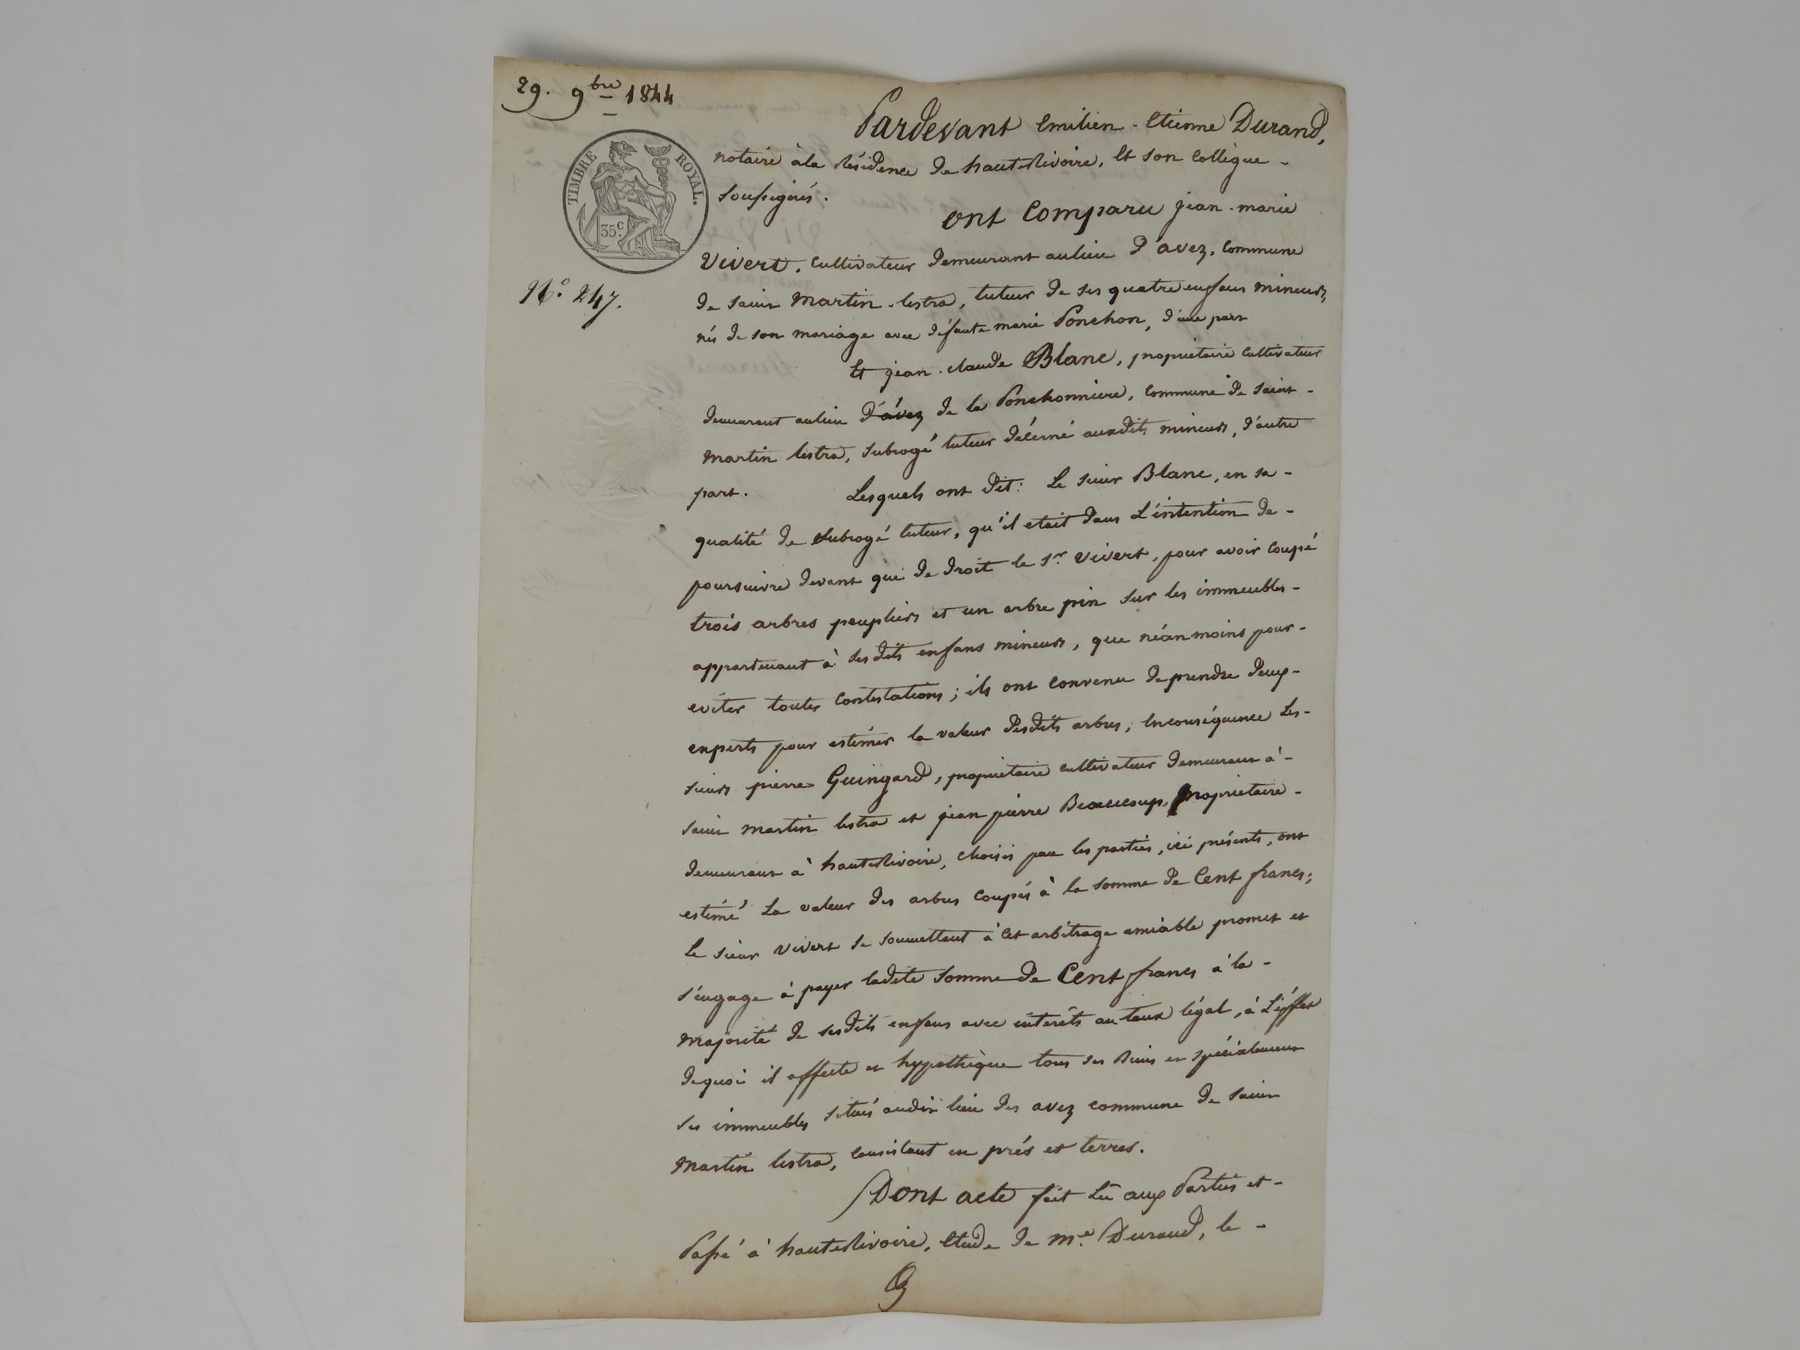 29. 9bre 1844
TIMBRE ROYAL.
35c.
No. 247.
Pardevant Emilien-Etienne Durand,
notaire à la Résidence de hauterivoire, Et son Collègue -
Soussignés.
ont Comparu jean-marie
Vivert, Cultivateur demeurant au lieu d'avez, Commune
de saint Martin-lestra, tuteur de ses quatre enfans mineurs,
nés de son mariage avec défunte marie Ponchon, d'une part
Et jean-claude Blanc, propriétaire Cultivateur
demeurant au lieu d'avez de la Ponchonniere, Commune de Saint-
Martin lestra, Subrogé tuteur décerné auxdits mineurs, d'autre
part. Lesquels ont dit: Le sieur Blanc, en sa -
qualité de Subrogé tuteur, qu'il etait dans L'intention de -
poursuivre devant qui de droit le Sr. Vivert, pour avoir Coupé
trois arbres peupliers et un arbre pin Sur les immeubles -
appartenant à ses dits enfans mineurs, que néanmoins pour -
eviter toutes Contestations; ils ont Convenu de prendre deux -
experts pour estimer la valeur desdits arbres; Enconséquence Les -
sieurs pierre Guingard, propriétaire cultivateur demeurant à -
Saint Martin lestra et jean pierre Beaucoup, propriétaire -
demeurant à hauterivoire, choisis par les parties, ici présents, ont
estimé La valeur des arbres Coupés à la Somme de Cent francs;
Le sieur Vivert se soumettant à Cet arbitrage amiable promet et
s'engage à payer ladite Somme de Cent francs à la -
majorité de ses dits enfans avec intérêts au taux légal, à L'éffet
de quoi il affecte et hypothèque tous ses Biens et spécialement
ses immeubles situés audit lieu des avez commune de Saint
Martin lestra, Consistant en prés et terres.
Dont acte fait Lû aux Parties et -
Passé à hauterivoire, Etude de Me. Durand, le -